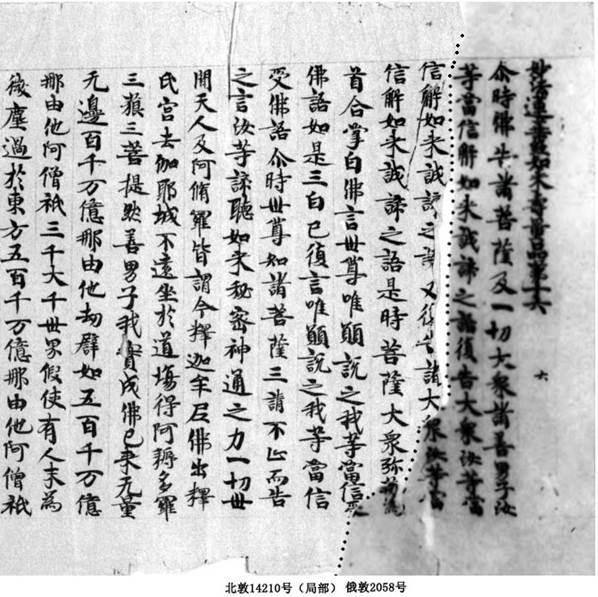 妙法蓮華經如来壽量品第十六
六
尒時佛告諸菩薩及一切大衆諸善男子汝
等當信解如来誠諦之語復告大衆汝等當
信解如来誠諦之語又復告諸大衆汝等當
信解如来誠諦之語是時菩薩大衆弥勒為
首合掌白佛言世尊唯願說之我等當信受
佛語如是三白已復言唯願說之我等當信
受佛語尒時世尊知諸菩薩三請不止而告
之言汝等諦聽如来秘密神通之力一切世
間天人及阿脩羅皆謂今釋迦牟尼佛出釋
氏宮去伽耶城不遠坐於道場得阿耨多羅
三藐三菩提然善男子我實成佛已来无量
无邊百千万億那由他劫譬如五百千万億
那由他阿僧祇三千大千世界假使有人末為
微塵過於東方五百千万億那由他阿僧祇
北敦14210号（局部） 俄敦2058号